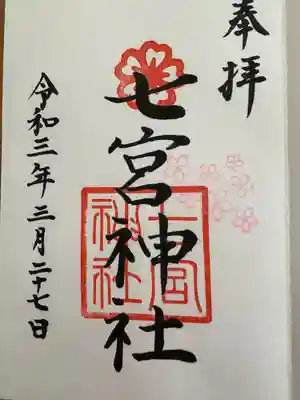 奉拝
七宮神社
七宮
神社
令和三年三月二十七日